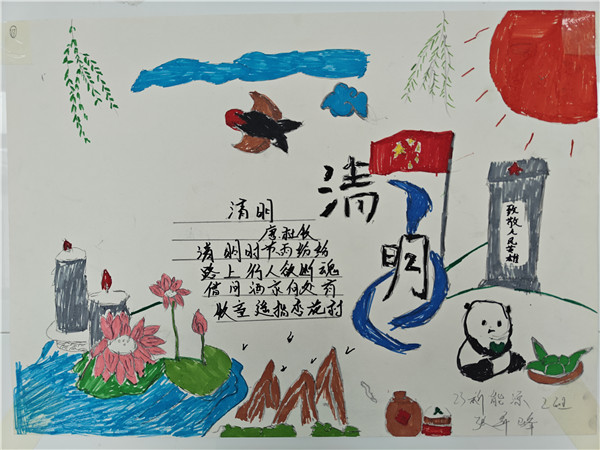 清明
清明
唐.杜牧
清明时节雨纷纷
路上行人欲断魂
借问酒家何处有
牧童遥指杏花村
致敬人民英雄
23新能源